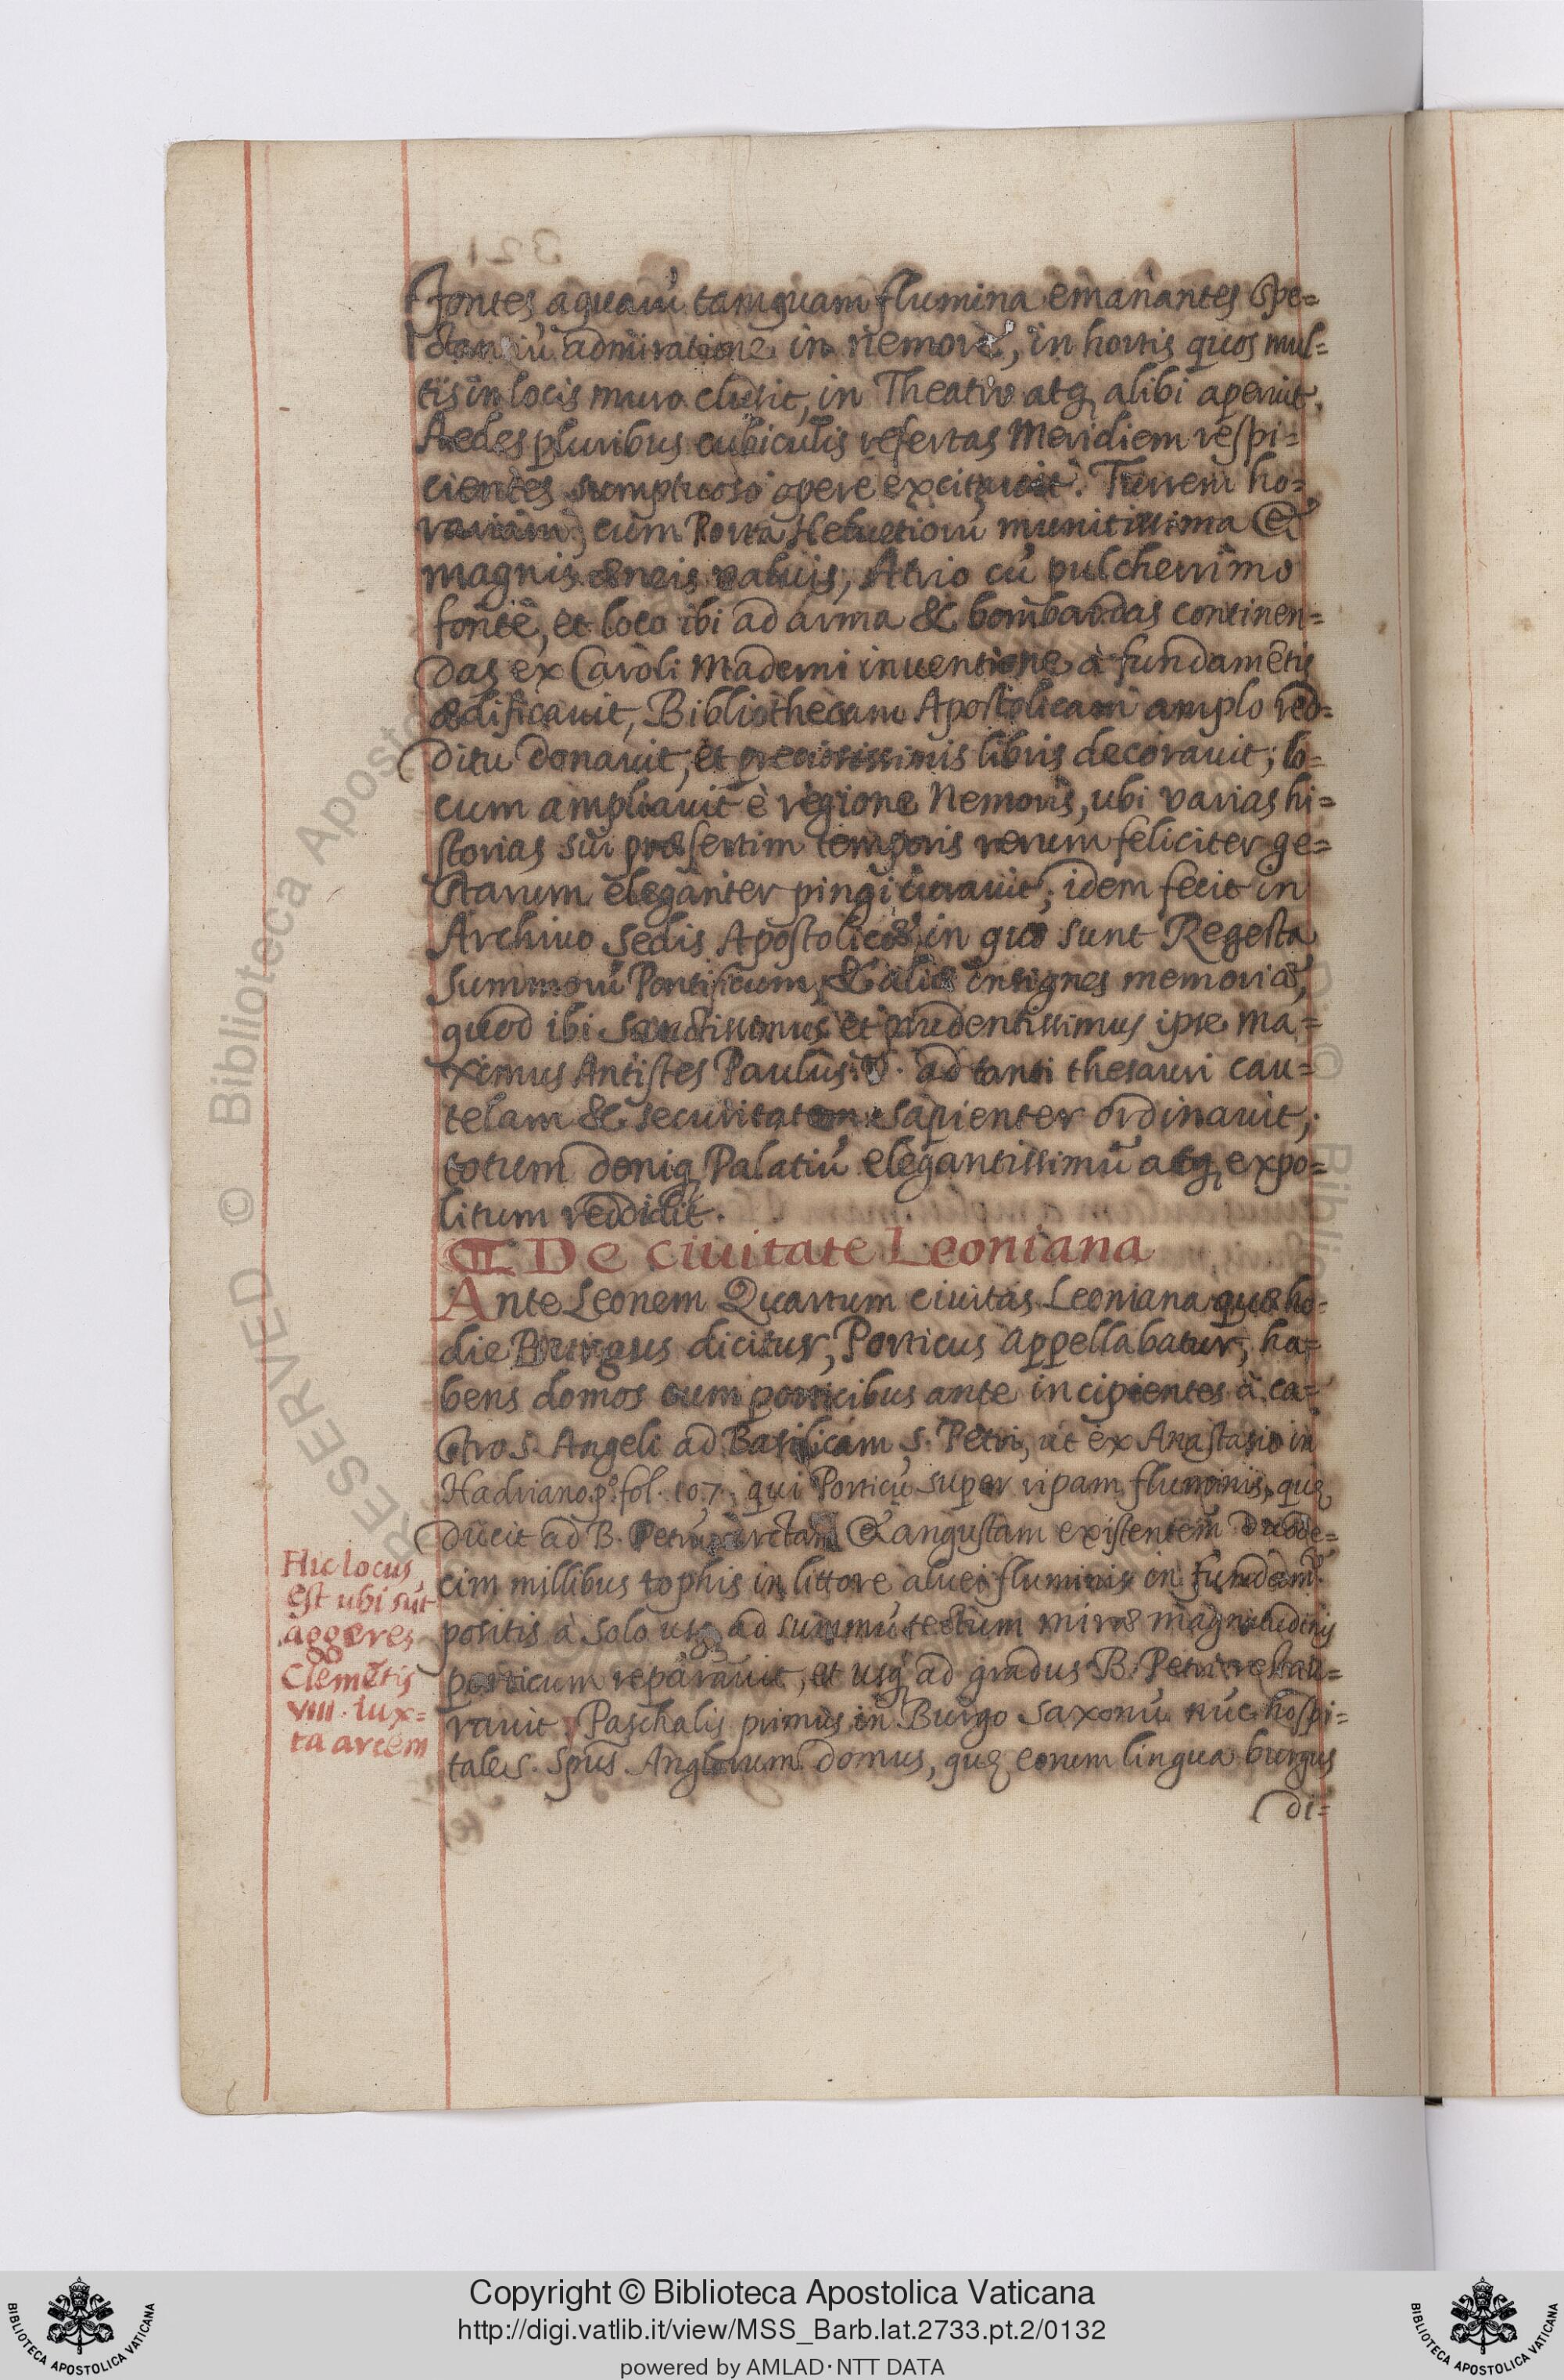 fontes aquarũ tamquam flumina emanantes spe=
ctantiũ admiratione, in nemore, in hortis quos mul=
tis in locis muro clusit, in Theatro atq alibi aperuit,
Aedes pluribus cubiculis refertas Meridiem respi=
cientes sumptuoso opere excitauit. Turrem ho=
rariam, cum Porta Heluetiorũ munitissima &
magnis æneis valuis, Atrio cũ pulcherrimo
fonte, et loco ibi ad arma & bombardas continen=
das ex Caroli Maderni inuentione à fundamẽtis
ædificauit, Bibliothecam Apostolicam amplo red=
ditu donauit, et preciosissimis libris decorauit; lo=
cum ampliauit è regione Nemoris, ubi varias hi=
storias sui præsertim temporis rerum feliciter ge=
starum eleganter pingi curauit; idem fecit in
Archiuo sedis Apostolicæ, in quo sunt Regesta
Summorũ Pontificum, & aliæ insignes memoriæ,
quod ibi sanctissimus et prudentissimus ipse Ma=
ximus Antistes Paulus V. ad tanti thesauri cau=
telam & securitatem sapienter ordinauit;
totum deniq Palatiũ elegantissimũ atq expo=
litum reddidit.
De ciuitate Leoniana
Ante Leonem Quartum ciuitas Leoniana quæ ho=
die Burgus dicitur, Porticus appellabatur, ha=
bens domos cum porticibus ante incipientes à ca=
stro s. Angeli ad Basilicam s. Petri, ut ex Anastasio in
Hadriano p.º fol. 107. qui Porticũ super ripam fluminis, quę
ducit ad B. Petrũ arctam & angustam existentem duode=
cim millibus tophis in littore aluei fluminis in fundam.
positis à solo usq ad summũ tectum miræ magnitudinis
porticum reparauit, et usq ad gradus B. Petri restau=
rauit Paschalis primus in Burgo saxonũ nũc hospi=
tale s. Spũs Anglorum domus, quę eorum lingua burgus
di=
Hic locus
est ubi sũt
aggeres
Clemẽtis
VIII. iux=
ta arcem
Copyright © Biblioteca Apostolica Vaticana
http://digi.vatlib.it/view/MSS_Barb.lat.2733.pt.2/0132
powered by AMLAD·NTT DATA
BIBLIOTECA APOSTOLICA VATICANA
BIBLIOTECA APOSTOLICA VATICANA